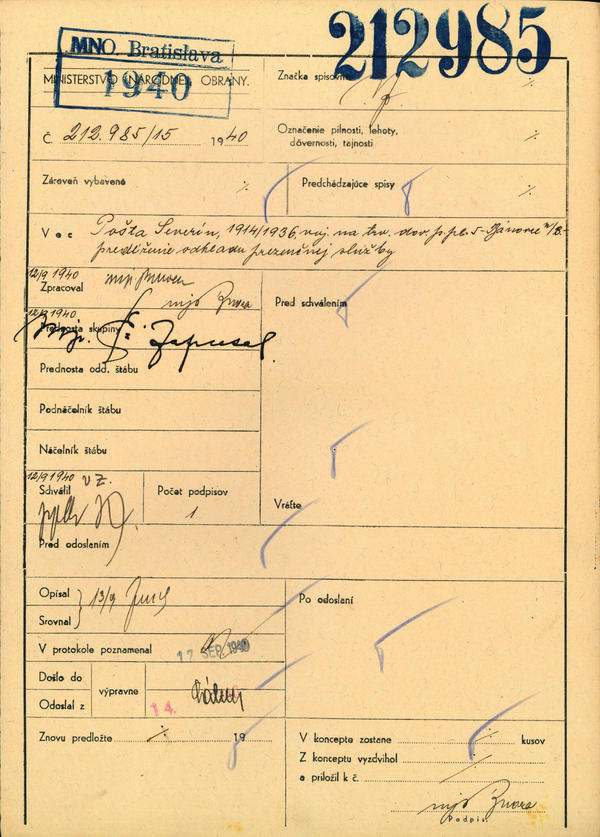 212985
MNO. Bratislava
1940
MINISTERSTVO NÁRODNEJ OBRANY.
Značka spisovne
č 212.985/15 1940
Označenie pilnosti, lehoty,
dôvernosti, tajnosti
Zároveň vybavené
Predchádzajúce spisy
Vec Pošta Severín, 1914/1936, voj. na trv. dov. p. pl. 5 - Bánovce n/B.-
predĺženie odkladu prezenčnej služby
12/9 1940
Zpracoval
mjr
Pred schválením
12/9 1940
Prednosta skupiny
Prednosta odd. štábu
Podnáčelník štábu
Náčelník štábu
12/9 1940 v z.
Schválil
Počet podpisov
1
Vráťte
Pred odoslaním
Opísal
13/9
Po odoslaní
Srovnal
V protokole poznamenal
12 SEP. 1940
Došlo do
výpravne
Odoslal z
14.
Znovu predložte 19
V koncepte zostane kusov
Z konceptu vyzdvihol
a priložil k č.
Podpis